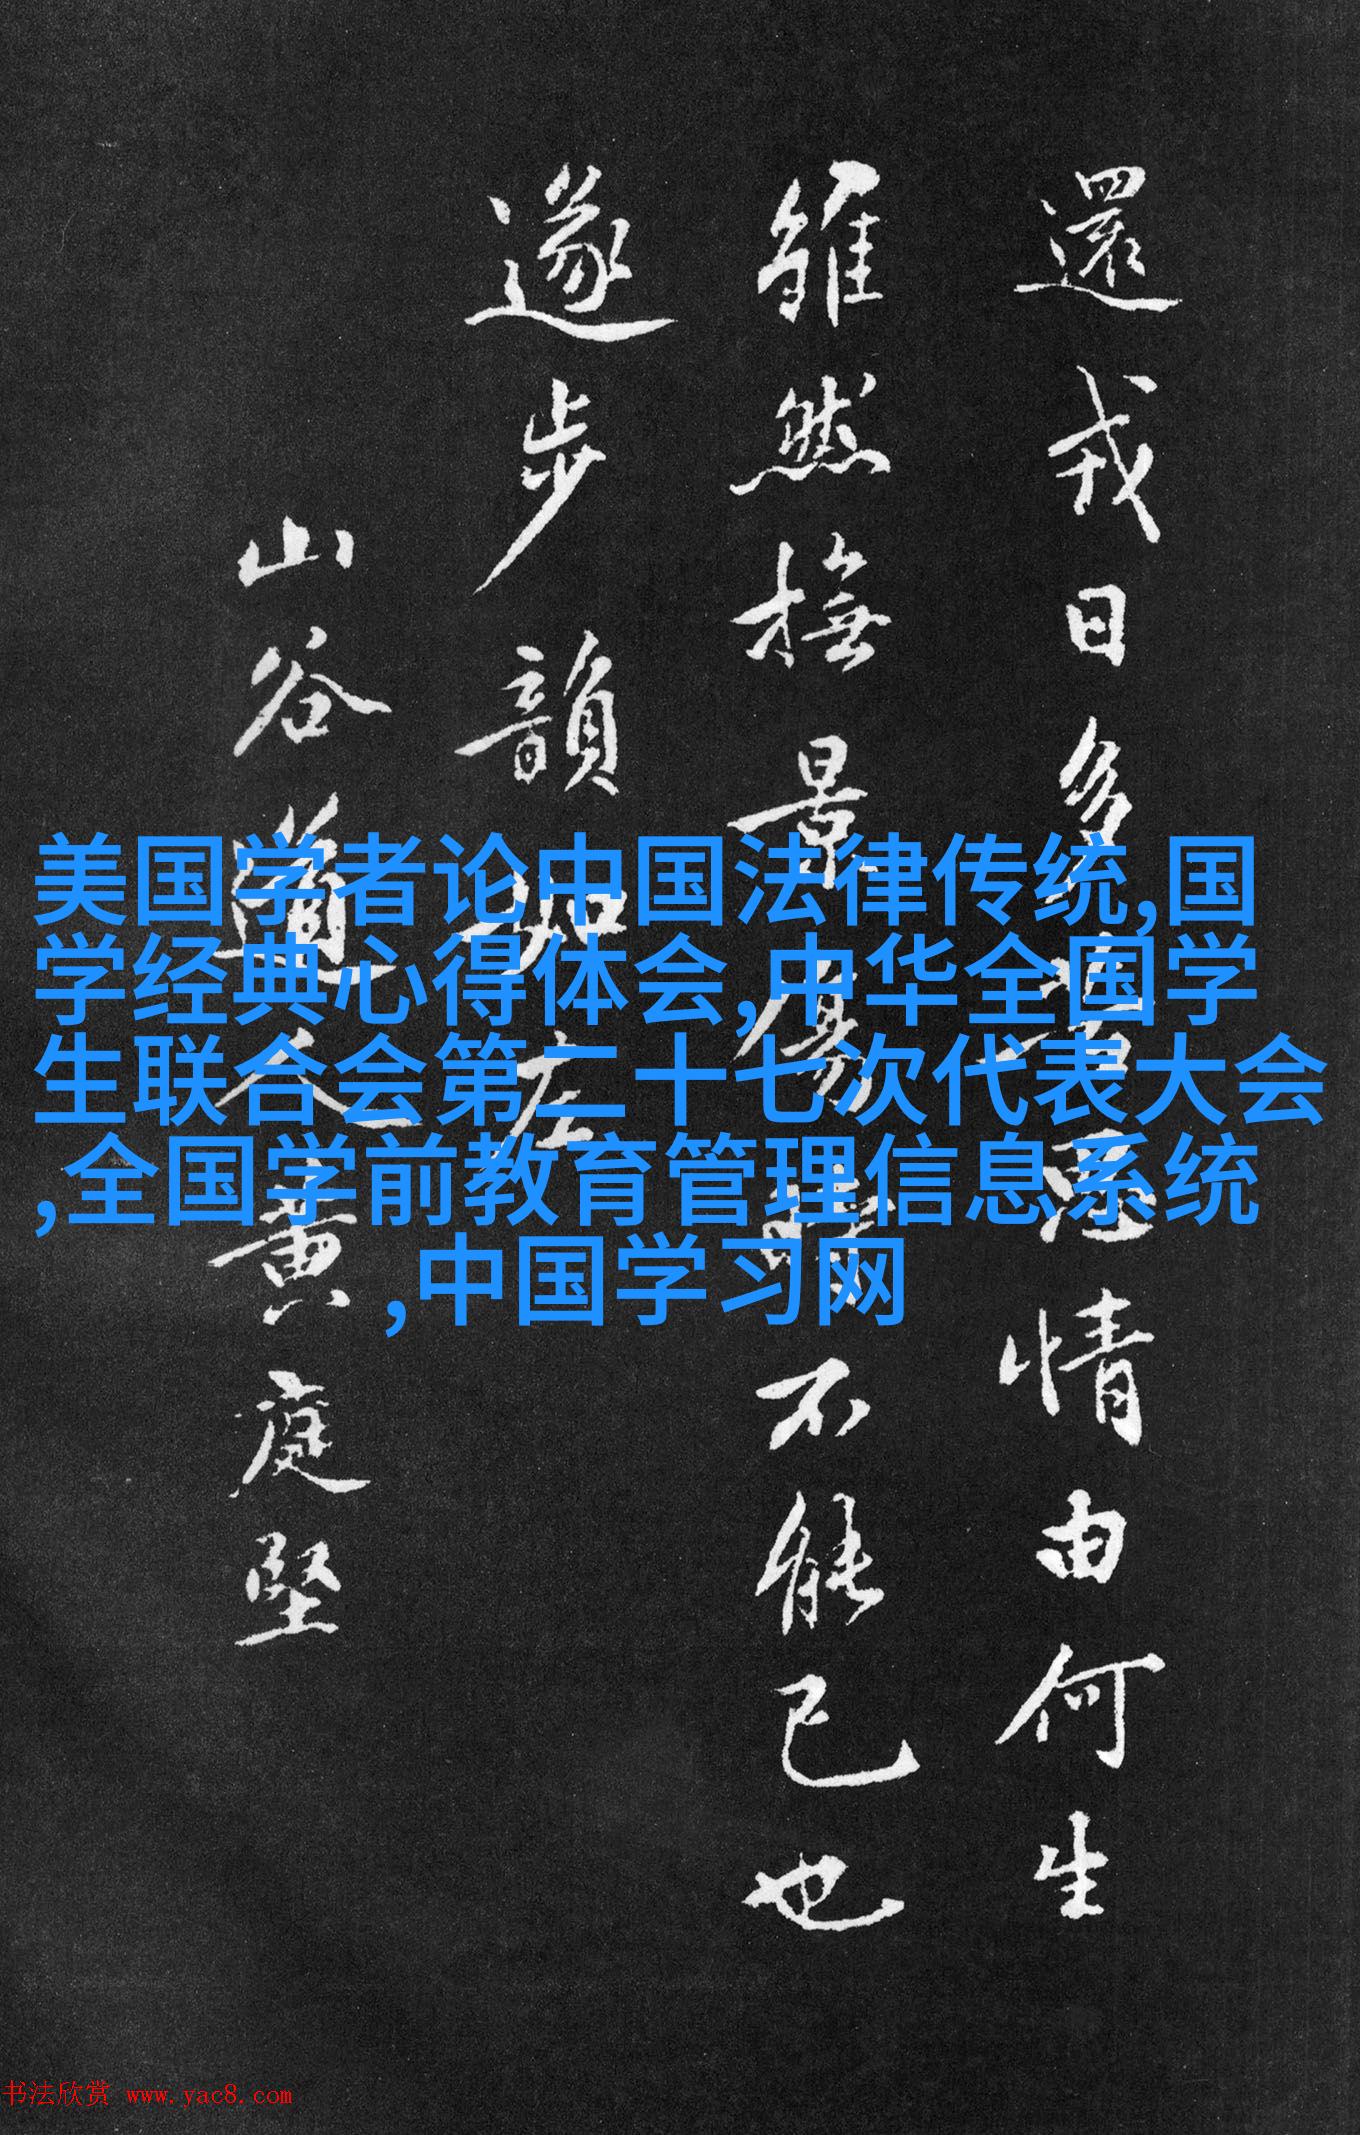 還戎日多愚情由何生
雖然撫景傷時不能已也
遂步韻如左
山谷道人黃庭堅
美国学者论中国法律传统,国
学经典心得体会,中华全国学
生联合会第二十七次代表大会
,全国学前教育管理信息系统
,中国学习网
书法欣赏 www.yac8.com